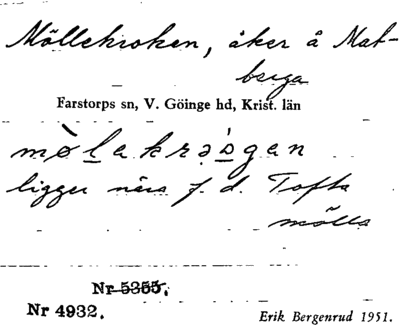 Möllekroken, åker å Mat-
berga
Farstorps sn, V. Göinge hd, Krist. län
ligger nära f. d. Tofta
mölla
Nr 5355.
Nr 4932.
Erik Bergenrud 1951.